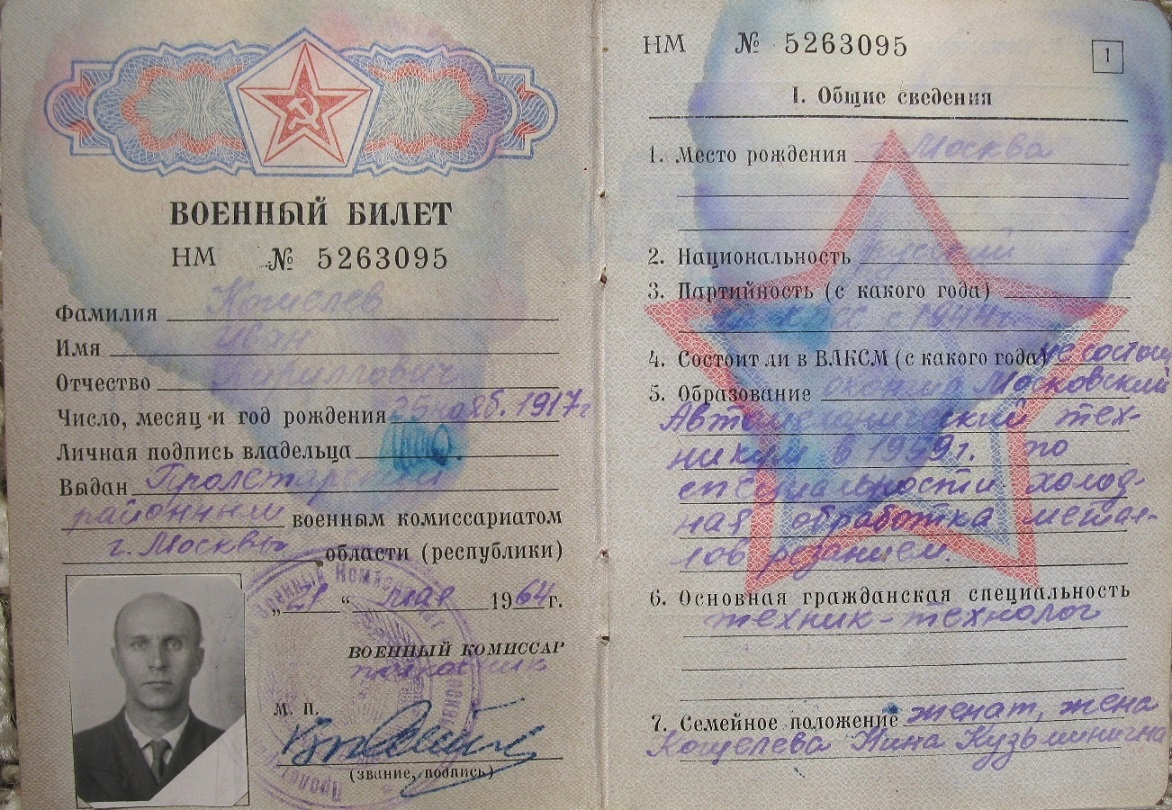 ВОЕННЫЙ БИЛЕТ
НМ № 5263095
Фамилия Кошелев
Имя Иван
Отчество Кириллович
Число, месяц и год рождения 26 нояб. 1917г
Личная подпись владельца
Выдан Пролетарским
районным военным комиссариатом
г. Москвы области (республики)
„21“ мая 1964г.
ВОЕННЫЙ КОМИССАР
полковник
М. П.
(звание, подпись)
НМ № 5263095
1
1. Общие сведения
1. Место рождения Москва
2. Национальность русский
3. Партийность (с какого года)
чл. КПСС с 1944г.
4. Состоит ли в ВЛКСМ (с какого года) не состоит
5. Образование Московский
Автомеханический тех-
никум в 1959г. по
специальности холод-
ная обработка метал-
лов резанием.
6. Основная гражданская специальность
техник-технолог
7. Семейное положение женат, жена
Кошелева Нина Кузьминична